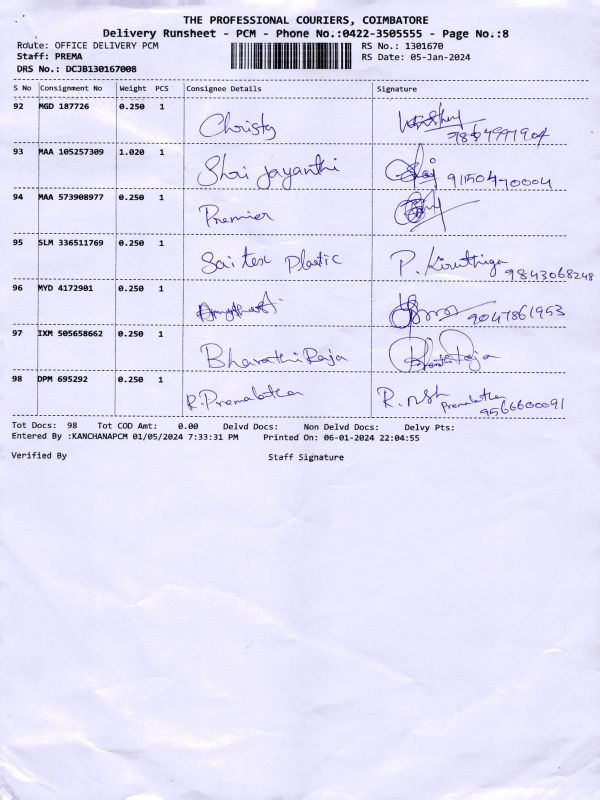 THE PROFESSIONAL COURIERS, COIMBATORE
Delivery Runsheet - PCM - Phone No.:0422-3505555 - Page No.:8
Route: OFFICE DELIVERY PCM RS No.: 1301670
Staff: PREMA RS Date: 05-Jan-2024
DRS No.: DCJB130167008
S No Consignment No Weight PCS Consignee Details Signature
92 MGD 187726 0.250 1
Christy
93 MAA 105257309 1.020 1
Shri Jayanthi 9115047-0004
94 MAA 573908977 0.250 1
Premier
95 SLM 336511769 0.250 1
Sai tex Plastic P. Kiruthiga
9843068248
96 MYD 4172901 0.250 1
9047861953
97 IXM 505658662 0.250 1
Bharathi Raja Bharathi Raja
98 DPM 695292 0.250 1
R. Premalatha R. Premalatha
9566600091
Tot Docs: 98 Tot COD Amt: 0.00 Delvd Docs: Non Delvd Docs: Delvy Pts:
Entered By :KANCHANAPCM 01/05/2024 7:33:31 PM Printed On: 06-01-2024 22:04:55
Verified By Staff Signature